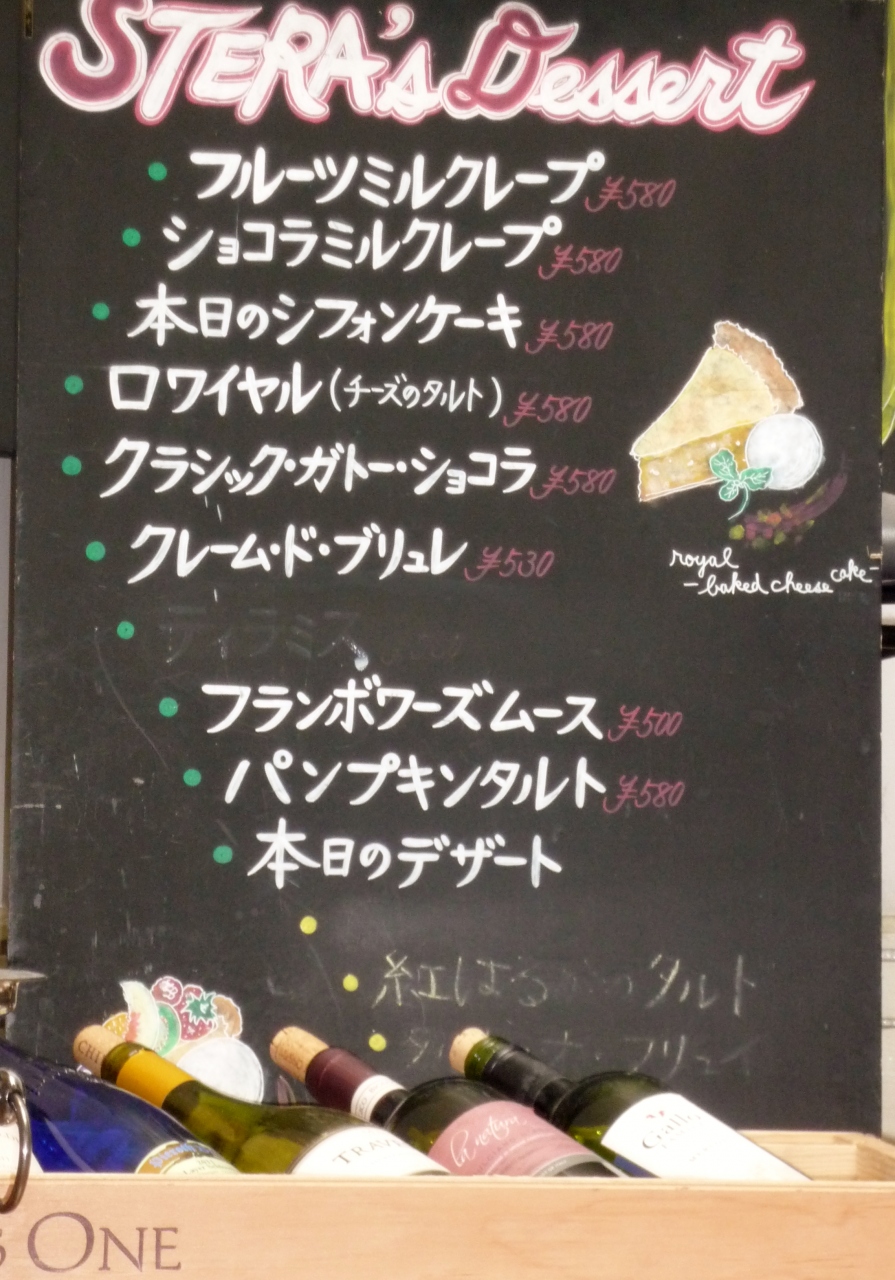 STERA's Dessert
フルーツミルクレープ ¥580
ショコラミルクレープ ¥580
本日のシフォンケーキ ¥580
ロワイヤル(チーズのタルト) ¥580
クラシック・ガトー・ショコラ ¥580
クレーム・ド・ブリュレ ¥530
royal
-baked cheese cake-
ティラミス
フランボワーズムース ¥500
パンプキンタルト ¥580
本日のデザート
紅はるかのタルト
TRAV
la
ONE